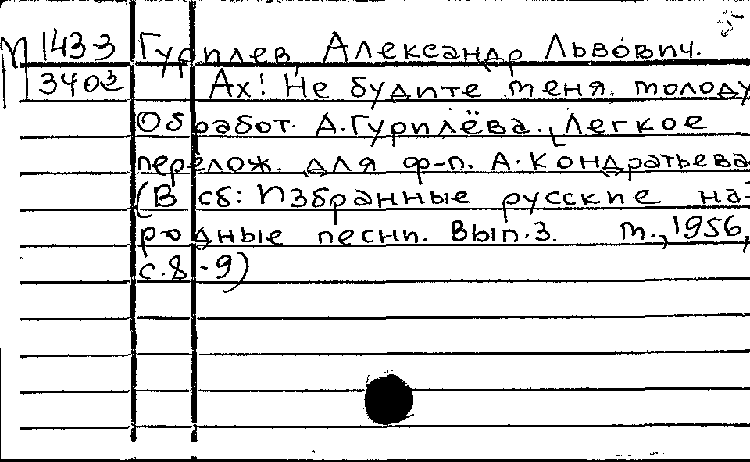 М 143-3 Гурилев, Александр Львович.
3403 Ах! Не будите меня, молоду
Обработ. А. Гурилёва. Легкое
перелож. для ф-п. А. Кондратьева
(В сб: Избранные русские на-
родные песни. Вып. 3. М., 1956,
с. 8-9)